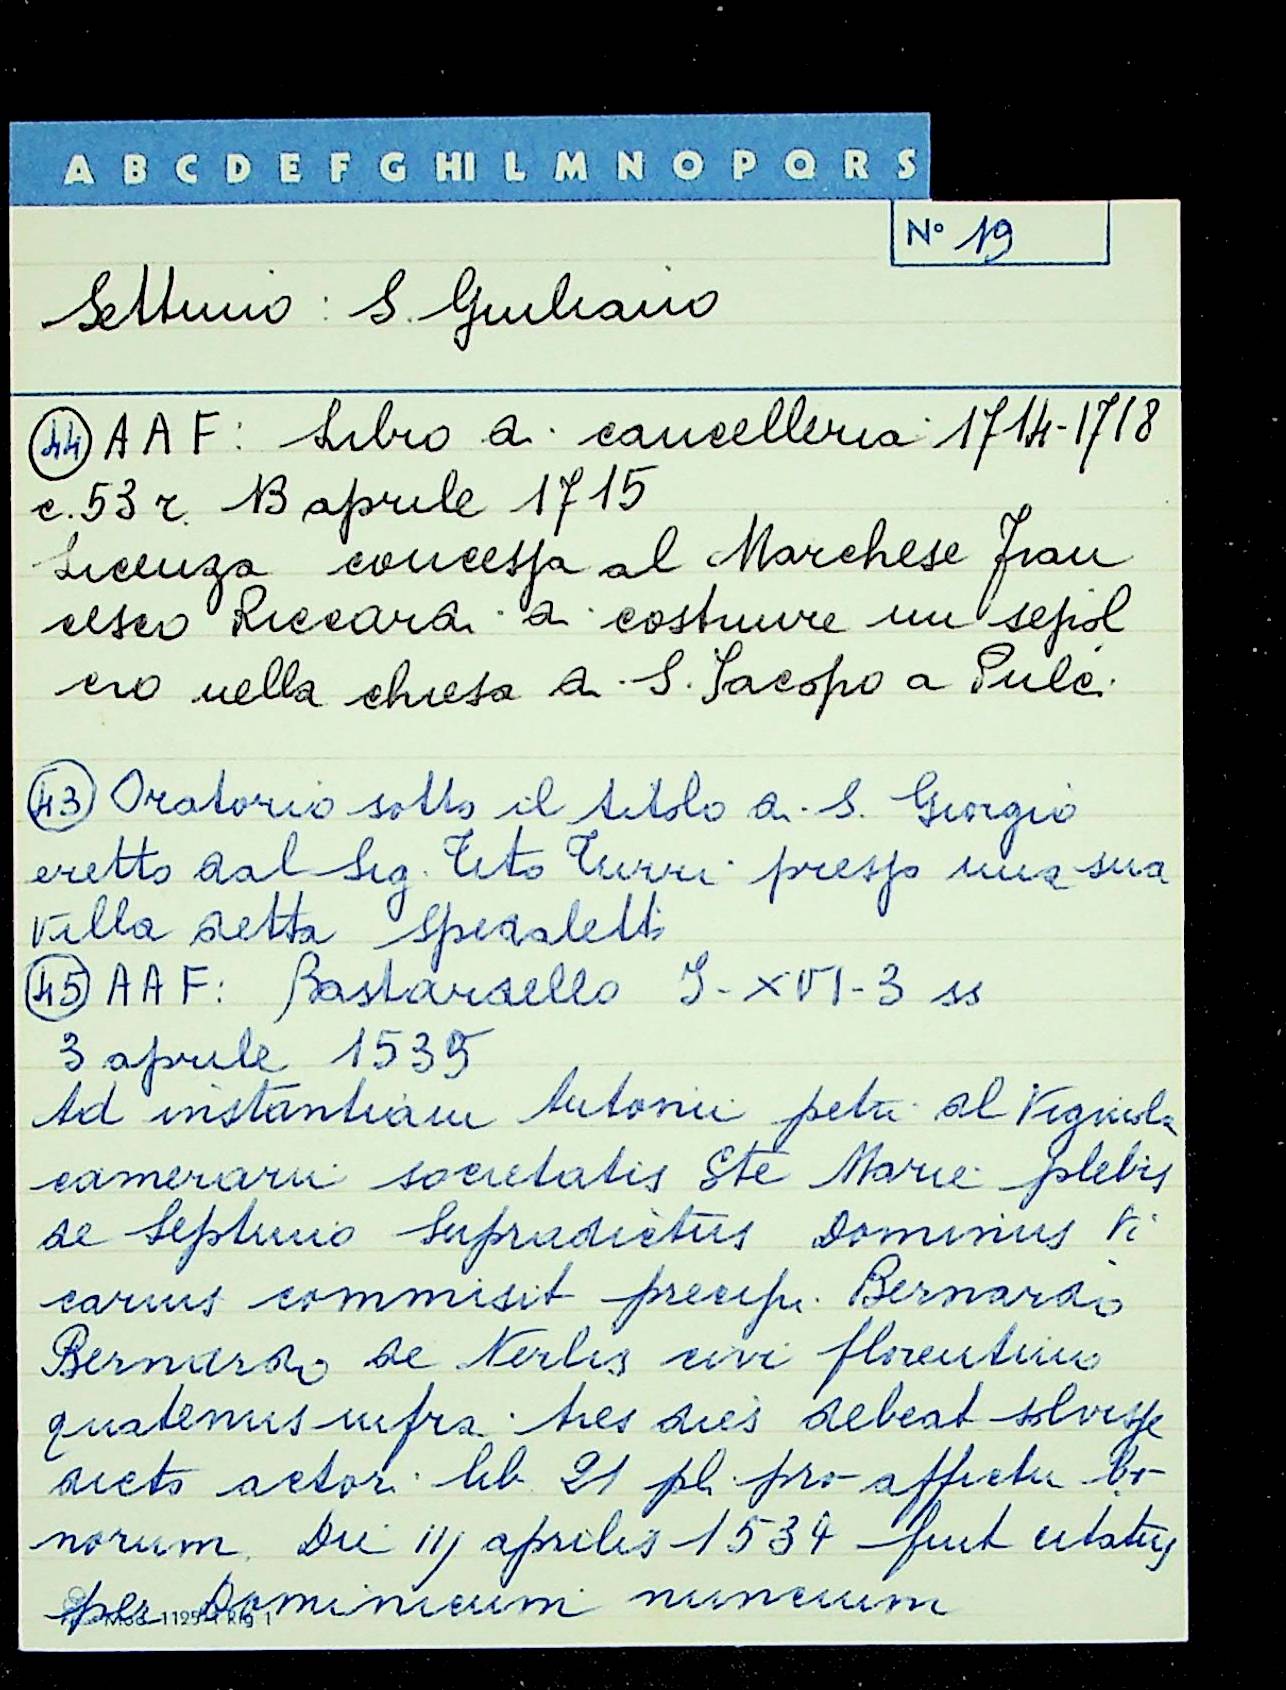 A B C D E F G HI L M N O P Q R S
N° 19
Settimo : S. Giuliano
44 AAF: Libro di cancelleria 1714-1718
c. 53 r. 13 aprile 1715
Licenza concessa al Marchese Fran
cesco Riccardi di costruire un sepol
cro nella chiesa di S. Jacopo a Pulci
43 Oratorio sotto il titolo di S. Giorgio
eretto dal Sig. Tito Turri presso una sua
villa detta Spedaletti
45 AAF: Bastardello I-XVI-3 ss
3 aprile 1535
Ad instantiam Antonii petri del Vignola
camerarii societatis Ste Marie plebis
de Septimo Supradictus Dominus Vi
carius commisit precipi Bernardo
Bernardo de Nerlis civi florentino
quatenus infra tres dies debeat solvisse
dicto actori lib 21 pl. pro affictu bo-
norum. Die iij aprilis 1534 fuit citatus
per Dominicum nuncium
Mod. 1125-1 Rig 1